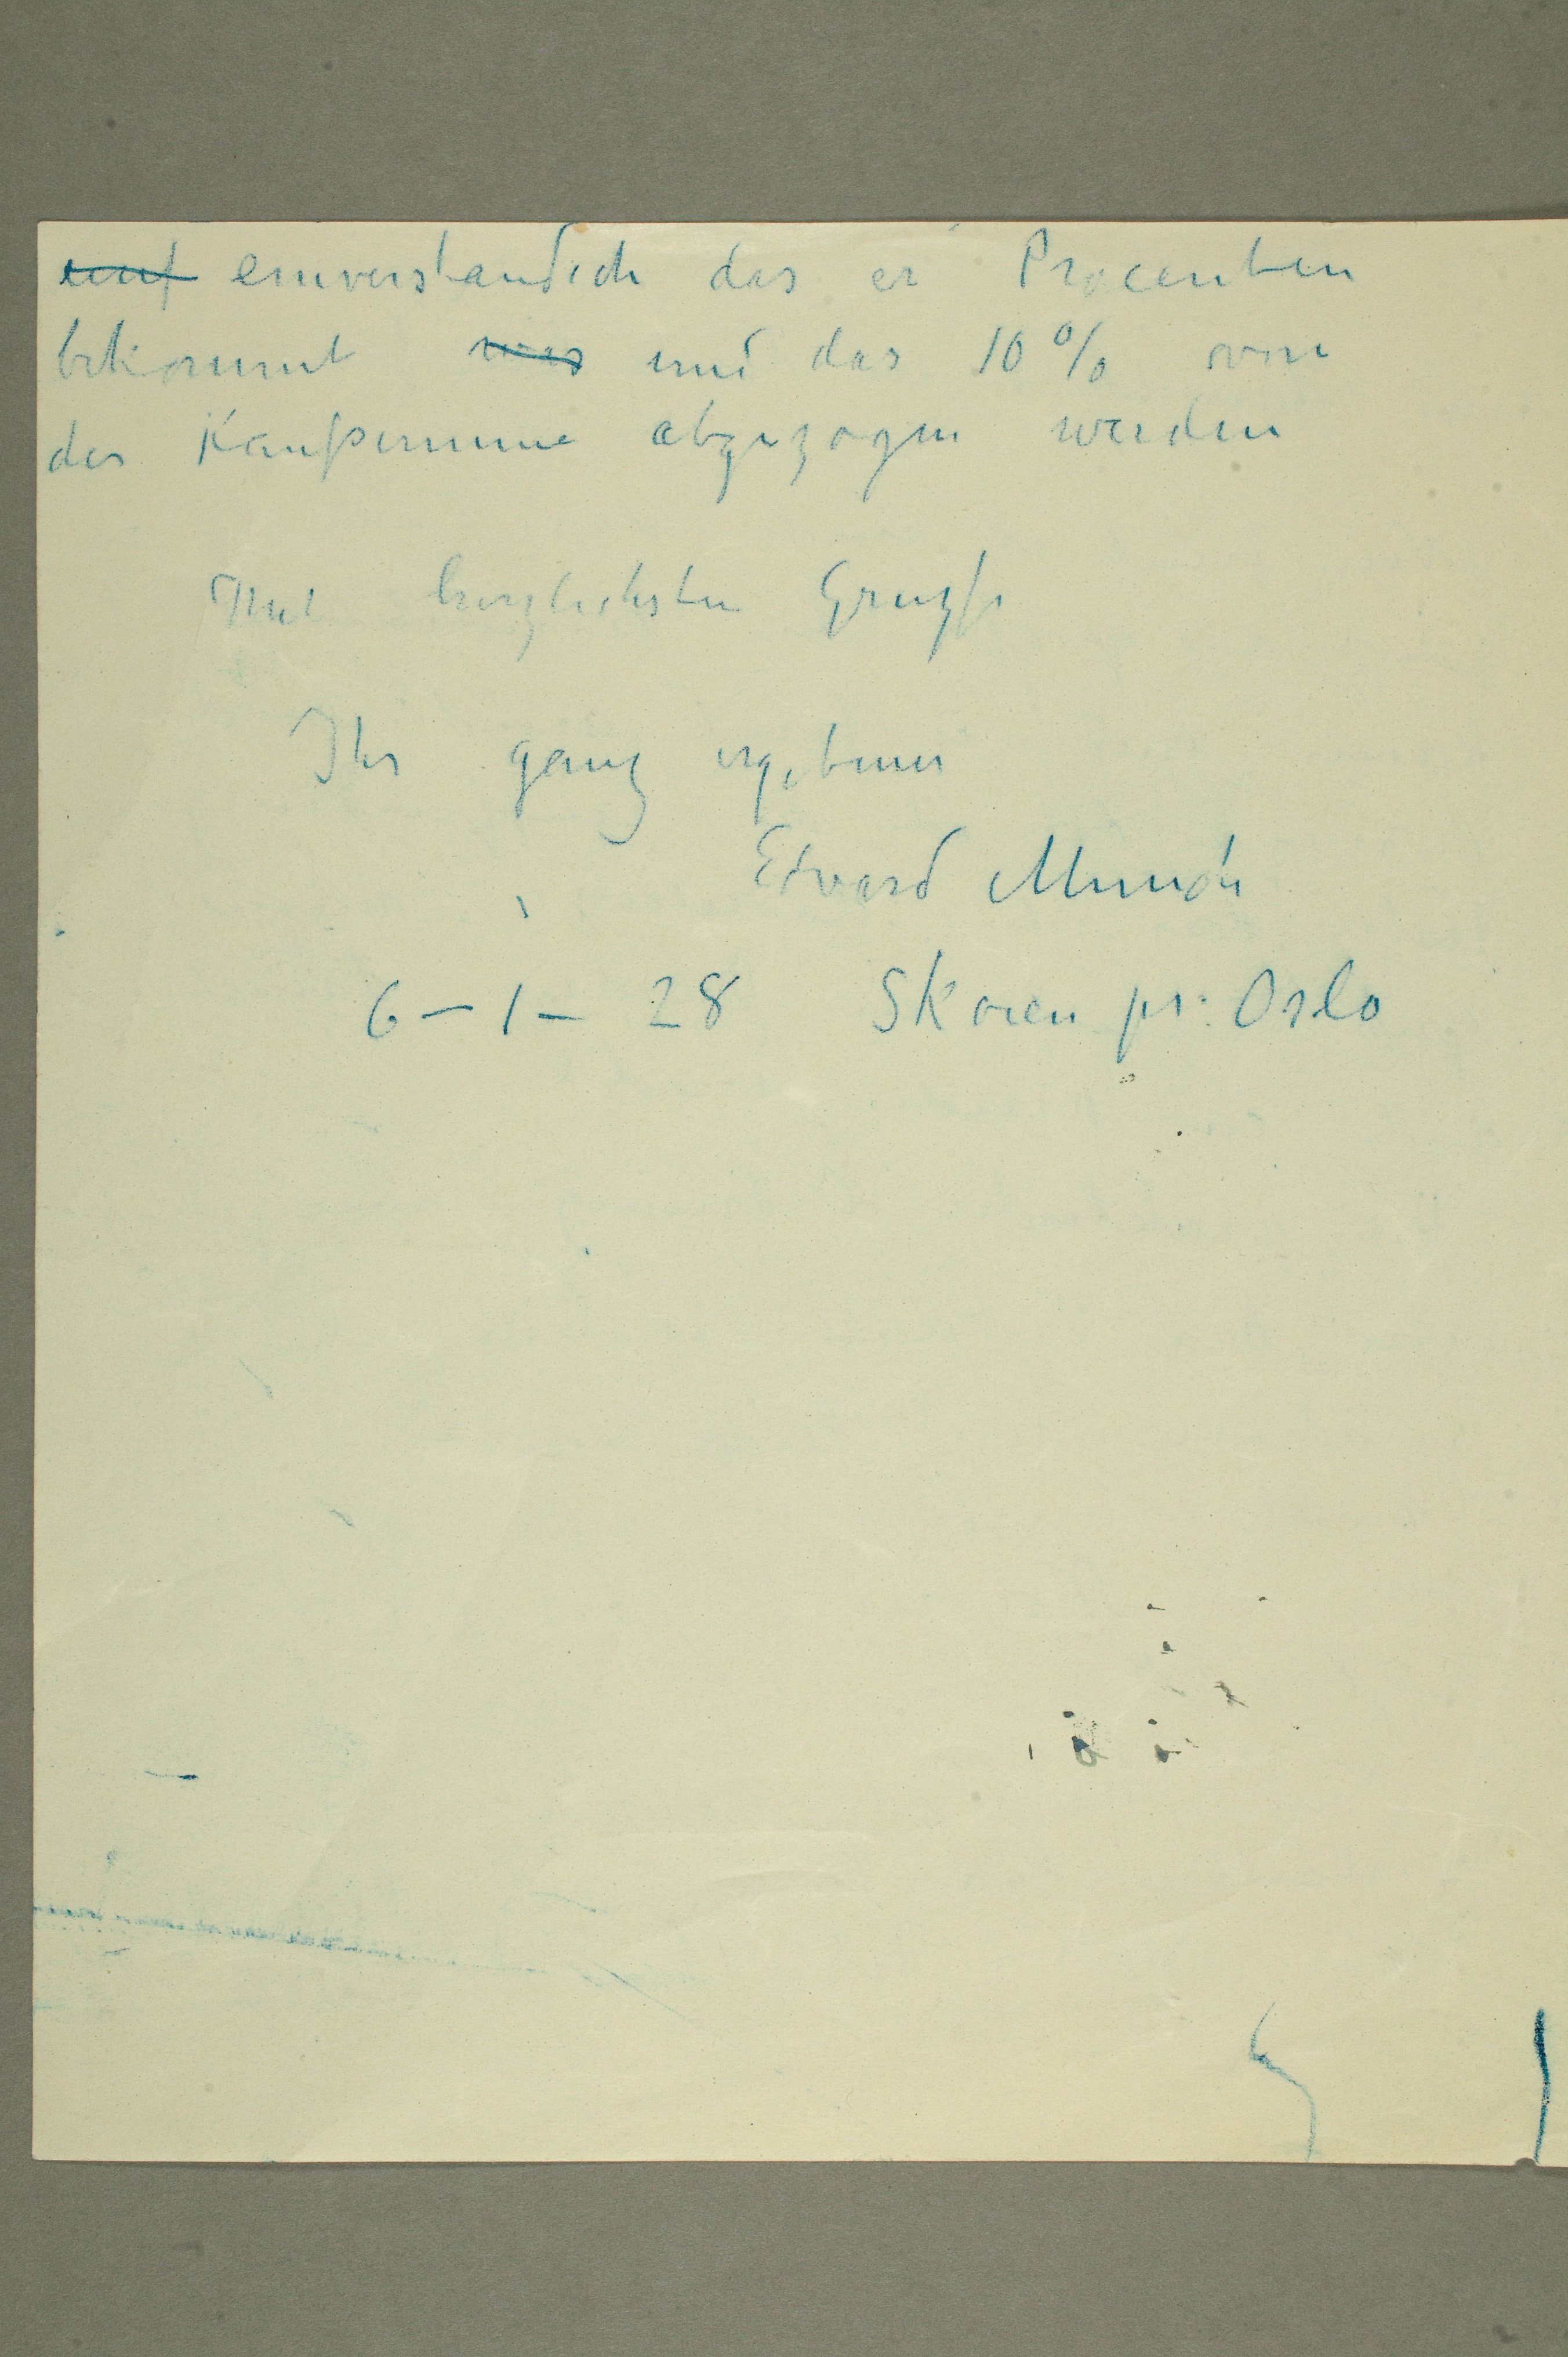 einverstandich das er Procenten
bekommt was und das 10% von
der Kaufsumme abgezogen werden
Mit herzlichsten Gruszse
Ihr ganz ergebener
Edvard Munch
6–1–28 Skøien pr: Oslo